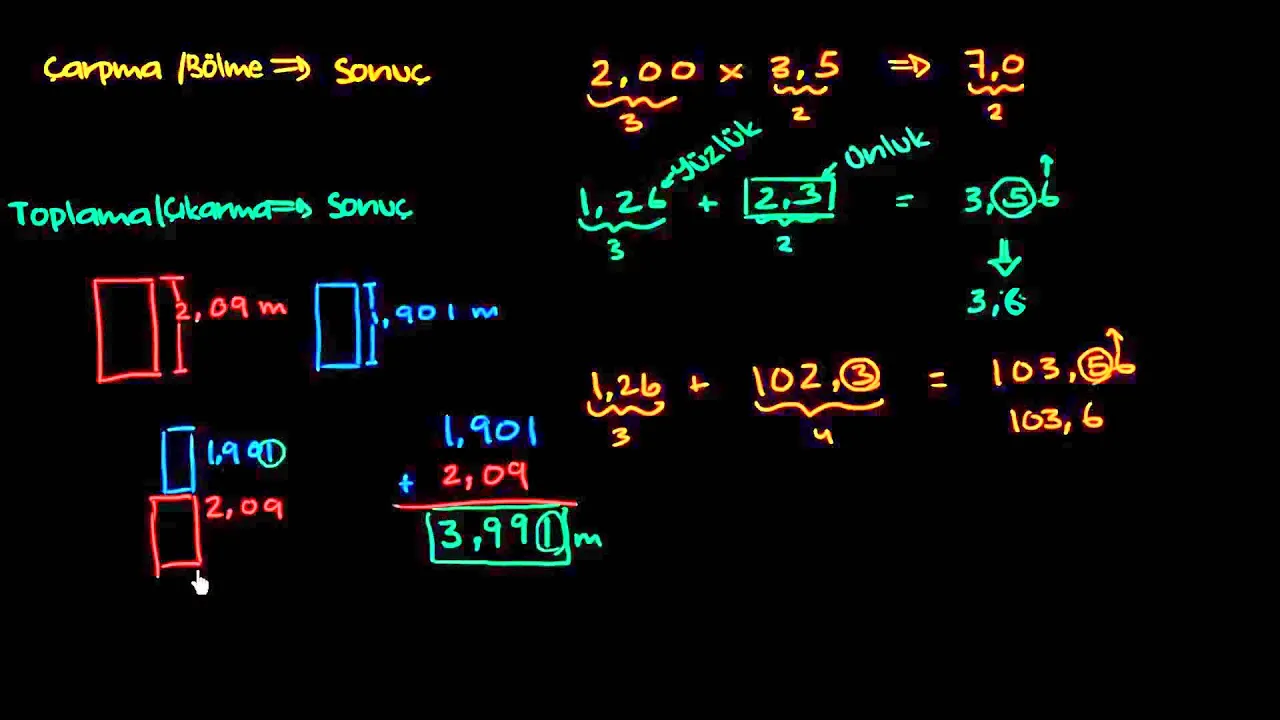 Çarpma /Bölme => Sonuç
2,00 x 3,5 => 7,0
3 2 2
Yüzlük Onluk
Toplama/Çıkarma => Sonuç
1,26 + 2,3 = 3,56
3 2
3,6
2,09 m
1,901 m
1,26 + 102,3 = 103,56
3 4
103,6
1,901
2,09
1,901
+ 2,09
3,991 m